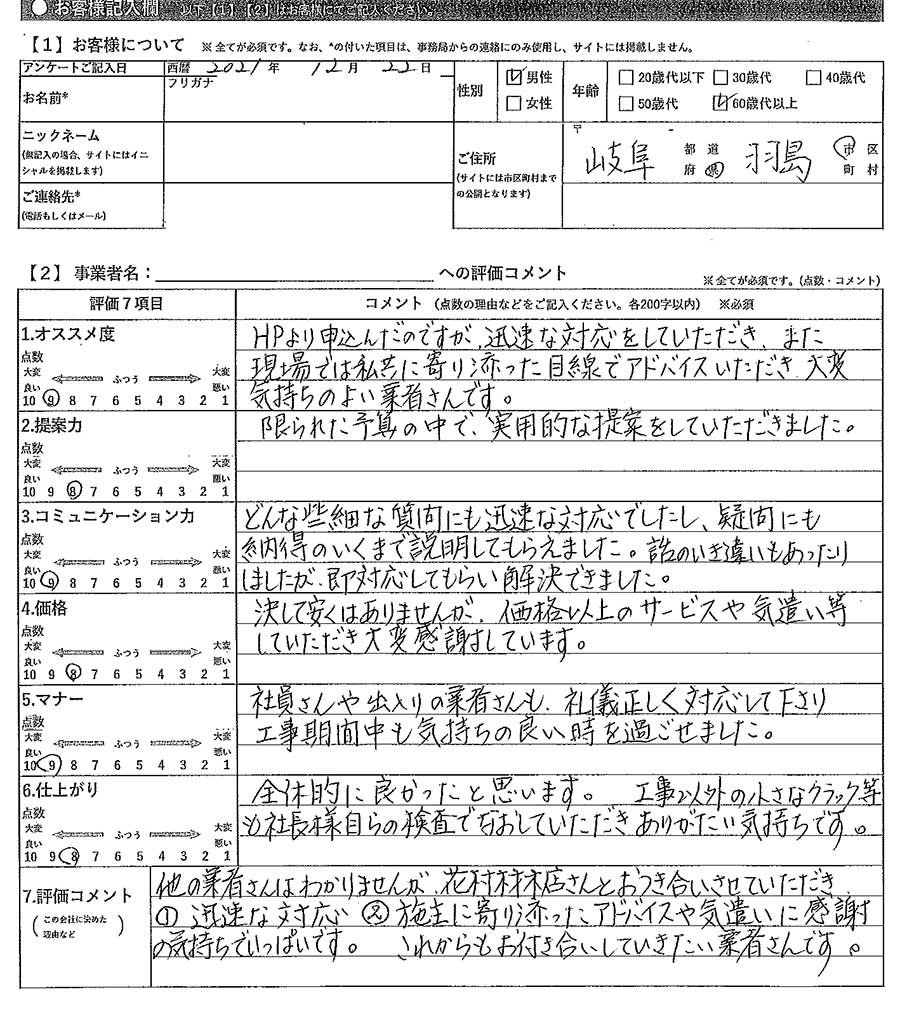 ●お客様記入欄 以下【1】【2】はお客様にてご記入ください。
【1】お客様について ※全てが必須です。なお、*の付いた項目は、事務局からの連絡にのみ使用し、サイトには掲載しません。
アンケートご記入日 西暦 2021年 12月 22日
お名前* フリガナ
性別 男性 女性
年齢 20歳代以下 30歳代 40歳代
50歳代 60歳代以上
ニックネーム
(無記入の場合、サイトにはイニ
シャルを掲載します)
ご連絡先*
(電話もしくはメール)
ご住所
(サイトには市区町村まで
の公開となります)
〒 -
岐阜 都道府県 羽島 市区町村
【2】事業者名: への評価コメント
※全てが必須です。(点数・コメント)
評価7項目 コメント (点数の理由などをご記入ください。各200字以内) ※必須
1.オススメ度
点数
大変 ふつう 大変
良い 悪い
10 9 8 7 6 5 4 3 2 1
HPより申込んだのですが、迅速な対応をしていただき、また
現場では私共に寄り添った目線でアドバイスいただき 大変
気持ちのよい業者さんです。
2.提案力
点数
大変 ふつう 大変
良い 悪い
10 9 8 7 6 5 4 3 2 1
限られた予算の中で、実用的な提案をしていただきました。
3.コミュニケーション力
点数
大変 ふつう 大変
良い 悪い
10 9 8 7 6 5 4 3 2 1
どんな些細な質問にも迅速な対応でしたし、疑問にも
納得のいくまで説明してもらえました。話のいき違いもあったり
はしたが、即対応してもらい解決できました。
4.価格
点数
大変 ふつう 大変
良い 悪い
10 9 8 7 6 5 4 3 2 1
決して安くはありませんが、価格以上のサービスや気遣い等
していただき大変感謝しています。
5.マナー
点数
大変 ふつう 大変
良い 悪い
10 9 8 7 6 5 4 3 2 1
社員さんや出入りの業者さんも、礼儀正しく対応して下さり
工事期間中も気持ちの良い時を過ごせました。
6.仕上がり
点数
大変 ふつう 大変
良い 悪い
10 9 8 7 6 5 4 3 2 1
全体的に良かったと思います。 工事以外の小さなクラック等
も社長様自らの検査でなおしていただきありがたい気持ちです。
7.評価コメント
(この会社に決めた
理由など)
他の業者さんはわかりませんが、花村材木店さんとおつき合いさせていただき、
① 迅速な対応 ② 施主に寄り添ったアドバイスや気遣いに感謝
の気持ちでいっぱいです。 これからもお付き合いしていきたい業者さんです。